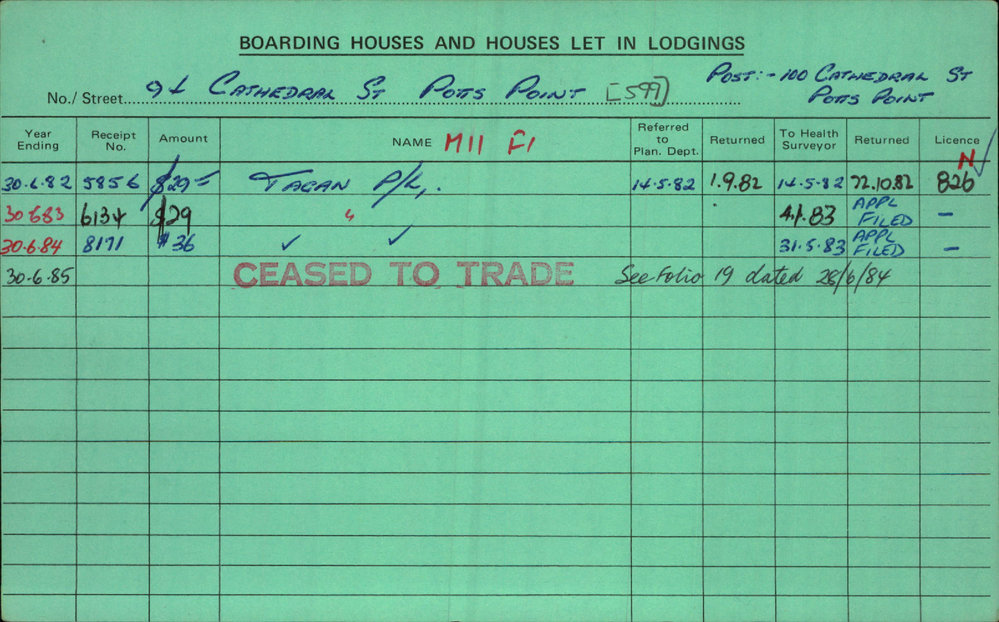 BOARDING HOUSES AND HOUSES LET IN LODGINGS
POST:- 100 CATHEDRAL ST
POTTS POINT
No./ Street 94 CATHEDRAL ST POTTS POINT [599]
Year Ending Receipt No. Amount NAME M11 F1 Referred to Plan. Dept. Returned To Health Surveyor Returned Licence
N
30.6.82 5856 $29= TAGAN P/L. 14.5.82 1.9.82 14.5.82 22.10.82 826 ✓
30.6.83 6134 $29 " 4.1.83 APPL FILED -
30.6.84 8171 $36 ✓ ✓ 31.5.83 APPL FILED -
30.6.85 CEASED TO TRADE See Folio 19 dated 28/6/84